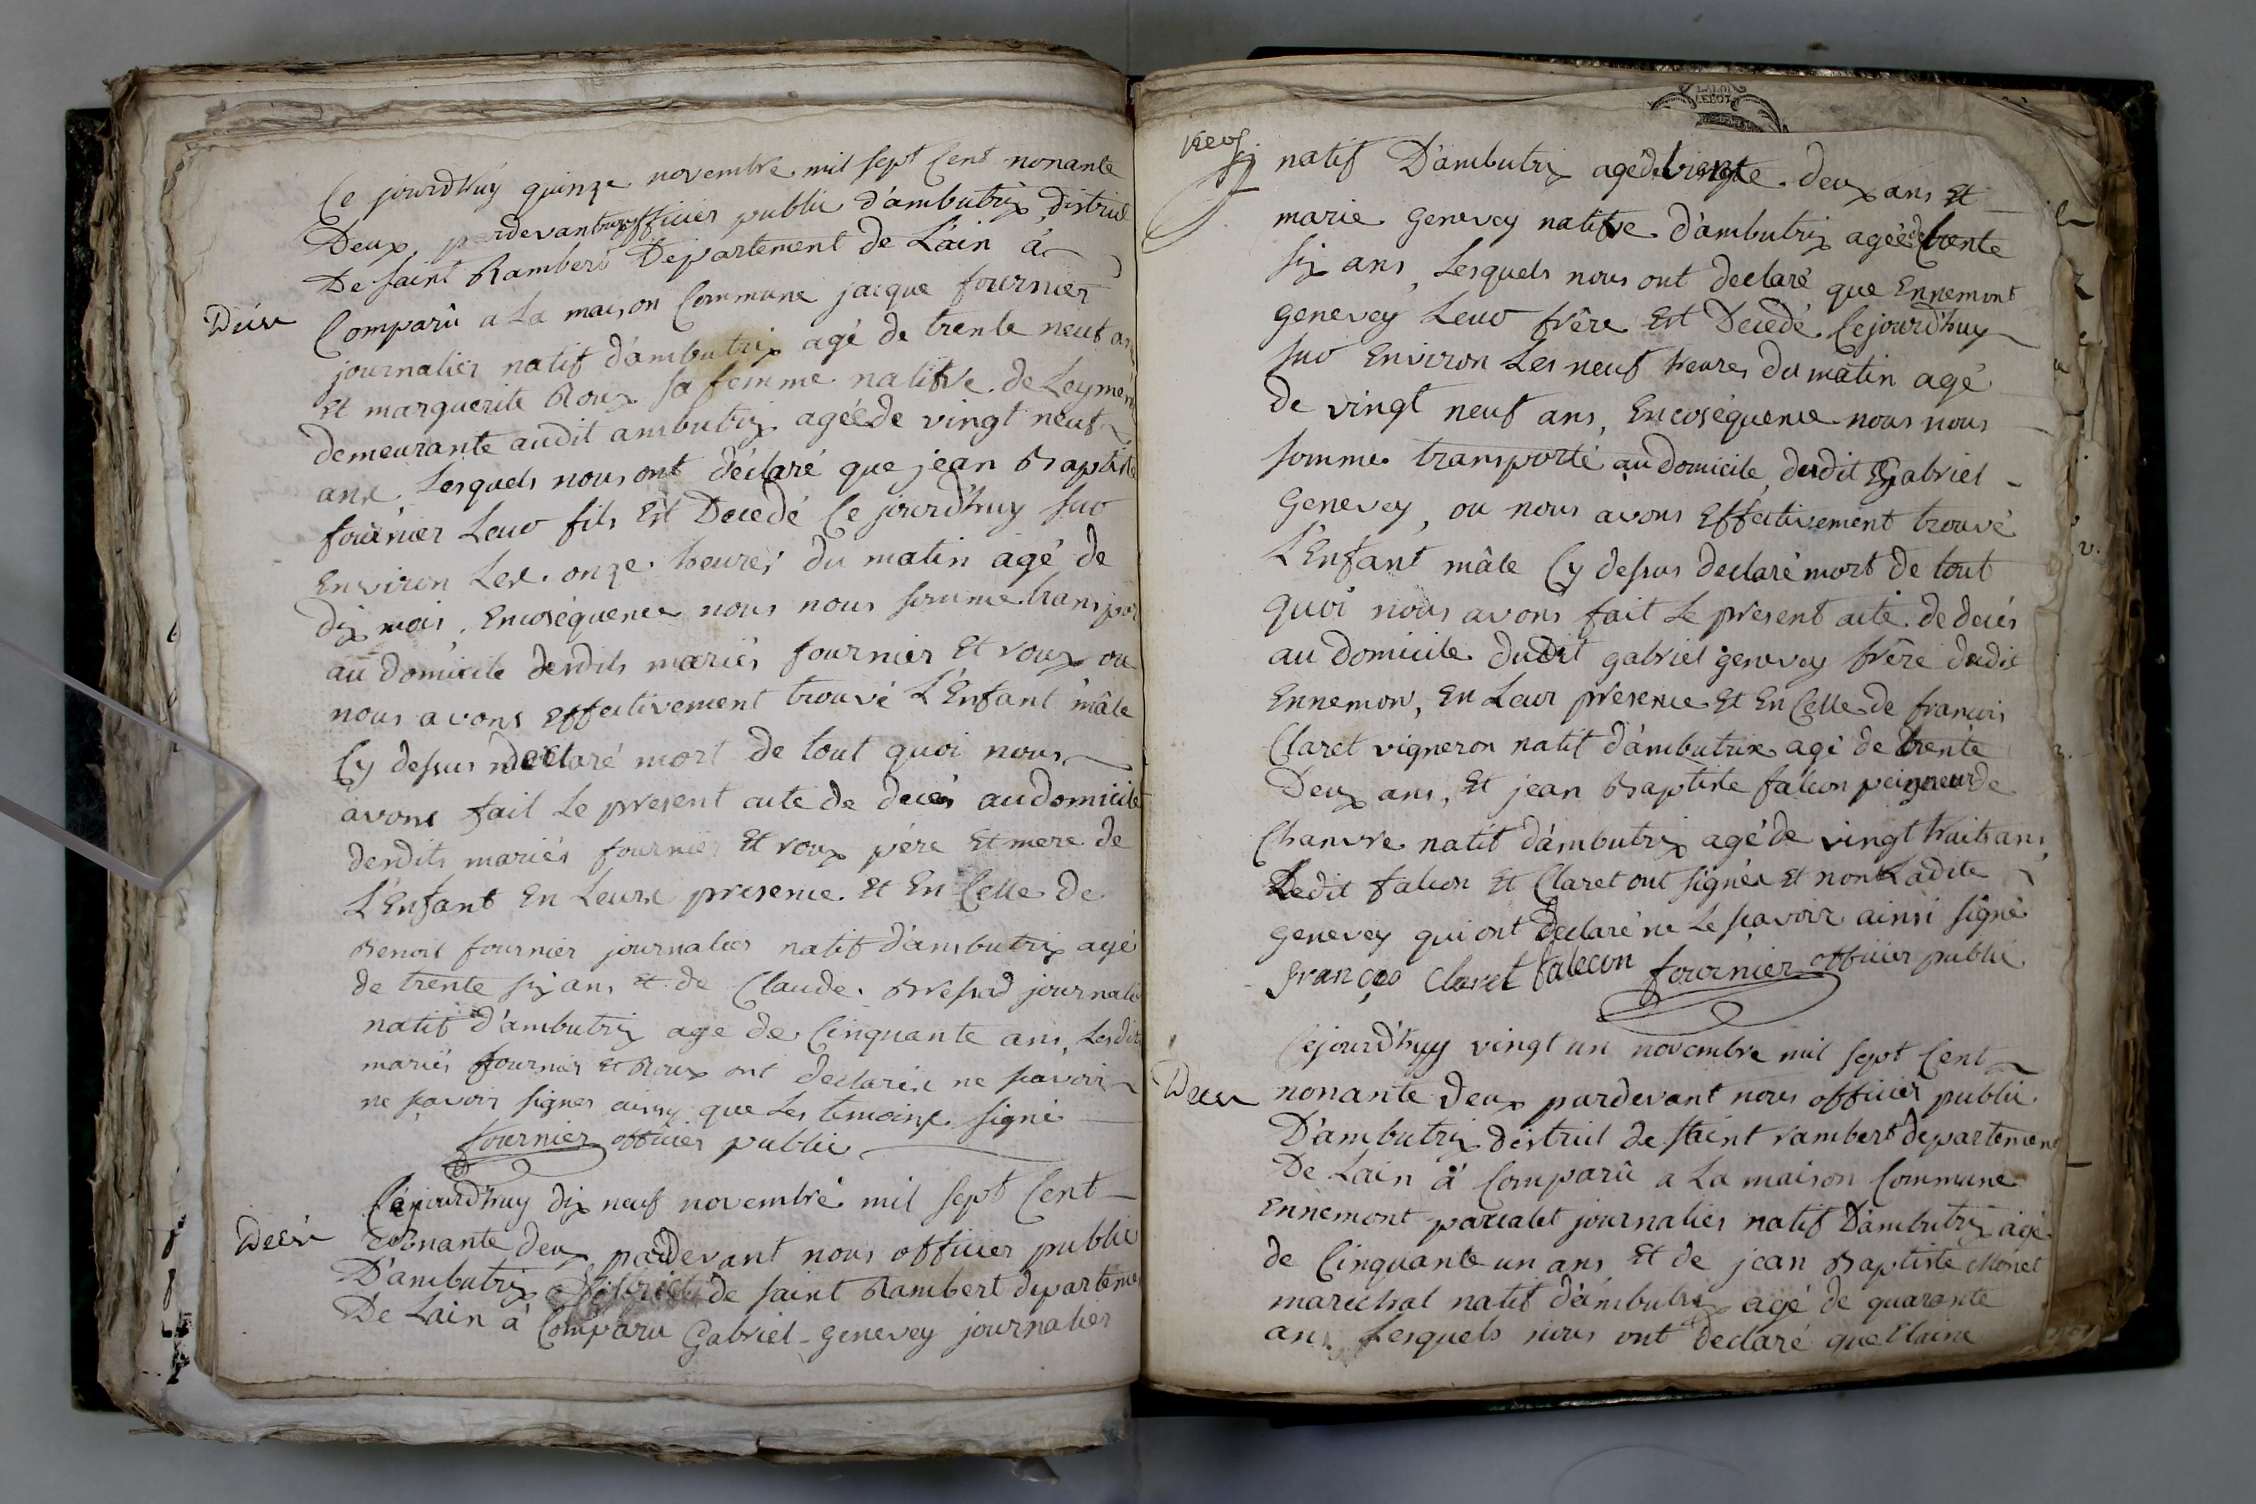 Ce jourd'huy quinze novembre mil sept Cent nonante
Deux, pardevant nous officier public d'ambutrix district
De saint Rambert Departement de L'ain à
Décès
Comparû a La maison Commune jacque fournier
journalier natif d'ambutrix agé de trente neuf ans
Et marguerite Roux sa femme native de Leyment
demeurante audit ambutrix agée de vingt neuf
ans. Lesquels nous ont déclaré que jean Baptiste
fournier Leur fils Est Decedé Ce jourd'huy sur
Environ Les onze heures du matin agé de
dix mois. Encoséquence nous nous somme transpor
au domicile desdits mariés fournier Et roux ou
nous avons Effectivement trouvé L'Enfant mâle
Cy dessus déclaré mort de tout quoi nous
avons fait Le present acte de decés au domicile
desdits mariés fournier Et roux père Et mere de
L'Enfant En Leurs presence Et En Celle de
Benoit fournier journalier natif d'ambutrix agé
de trente six ans Et de Claude journalier
natif d'ambutrix age de Cinquante ans, Lesdits
mariés fournier Et Roux ont declarés ne scavoir
ne sçavoir signer ainsy que Les temoins signé
fournier officier public
Cejourd'huy dix neuf novembre mil sept Cent
Décès
nonante deux pardevant nous officier public
D'ambutrix district de saint Rambert departement
De Lain à Comparu Gabriel Genevey journalier
natif D'ambutrix agé de trente deux ans Et
marie Genevey native d'ambutrix agée de trente
six ans, Lesquels nous ont declaré que Ennemont
genevey Leur frère Est Decedé Cejourd'huy
sur Environ Les neuf heures du matin agé
de vingt neuf ans, Encoséquence nous nous
somme transporté au domicile dudit Gabriel
Genevey, ou nous avons Effectivement trouvé
L'Enfant mâle Cy dessus declaré mort de tout
quoi nous avons fait Le present acte de decés
au domicile dudit gabriel genevey frère dudit
Ennemon, En Leur presence Et En Celle de francois
Claret vigneron natif d'ambutrix agé de trente
Deux ans, Et jean Baptiste falcon peigneur de
Chanvre natif d'ambutrix agé de vingt huit ans
Ledit falcon Et Claret ont signés Et non Ladite
genevey qui ont declaré ne Le scavoir ainsi signé
françois Claret falecon fournier officier public
Cejourd'huy vingt un novembre mil sept Cent
Décès
nonante deux pardevant nous officier public
D'ambutrix district de saint rambert departement
De Lain à Comparû a La maison Commune
Ennemont journalier natif D'ambutrix agé
de Cinquante un ans Et de jean Baptiste Monet
maréchal natif d'ambutrix agé de quarante
ans Lesquels nous ont declaré que Claire